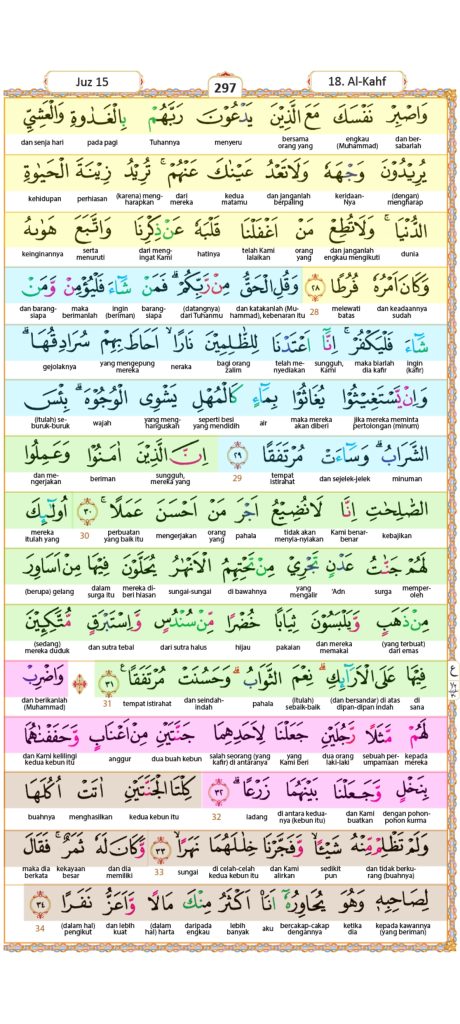 Juz 15
297
18. Al-Kahf
وَاصْبِرْ نَفْسَكَ مَعَ الَّذِيْنَ يَدْعُوْنَ رَبَّهُمْ بِالْغَدٰوةِ وَالْعَشِيِّ
dan ber-sabarlah engkau (Muhammad) bersama orang yang menyeru Tuhannya pada pagi dan senja hari
يُرِيْدُوْنَ وَجْهَهٗ وَلَا تَعْدُ عَيْنٰكَ عَنْهُمْۚ تُرِيْدُ زِيْنَةَ الْحَيٰوةِ
(dengan) mengharap keridaan-Nya dan janganlah berpaling kedua matamu dari mereka (karena) meng-harapkan perhiasan kehidupan
الدُّنْيَاۚ وَلَا تُطِعْ مَنْ اَغْفَلْنَا قَلْبَهٗ عَنْ ذِكْرِنَا وَاتَّبَعَ هَوٰىهُ
dunia dan janganlah engkau mengikuti orang yang telah Kami lalaikan hatinya dari meng-ingat Kami serta menuruti keinginannya
وَكَانَ اَمْرُهٗ فُرُطًا ٢٨ وَقُلِ الْحَقُّ مِنْ رَّبِّكُمْۗ فَمَنْ شَاۤءَ فَلْيُؤْمِنْ وَّمَنْ
dan keadaannya sudah melewati batas 28 dan katakanlah (Mu-hammad), kebenaran itu (datangnya) dari Tuhanmu barang-siapa ingin (beriman) maka berimanlah dan barang-siapa
شَاۤءَ فَلْيَكْفُرْۚ اِنَّآ اَعْتَدْنَا لِلظّٰلِمِيْنَ نَارًاۙ اَحَاطَ بِهِمْ سُرَادِقُهَاۗ
ingin (kafir) maka biarlah dia kafir sungguh, Kami telah me-nyediakan bagi orang zalim neraka yang mengepung mereka gejolaknya
وَاِنْ يَّسْتَغِيْثُوْا يُغَاثُوْا بِمَاۤءٍ كَالْمُهْلِ يَشْوِى الْوُجُوْهَۗ بِئْسَ
jika mereka meminta pertolongan (minum) maka mereka akan diberi air seperti besi yang mendidih yang meng-hanguskan wajah (itulah) se-buruk-buruk
الشَّرَابُۗ وَسَاۤءَتْ مُرْتَفَقًا ٢٩ اِنَّ الَّذِيْنَ اٰمَنُوْا وَعَمِلُوا
minuman dan sejelek-jelek tempat istirahat 29 sungguh mereka yang beriman dan me-ngerjakan
الصّٰلِحٰتِ اِنَّا لَا نُضِيْعُ اَجْرَ مَنْ اَحْسَنَ عَمَلًاۚ ٣٠ اُولٰۤىِٕكَ
kebajikan Kami benar-benar tidak akan menyia-nyiakan pahala orang yang mengerjakan perbuatan yang baik itu 30 mereka itulah yang
لَهُمْ جَنّٰتُ عَدْنٍ تَجْرِيْ مِنْ تَحْتِهِمُ الْاَنْهٰرُ يُحَلَّوْنَ فِيْهَا مِنْ اَسَاوِرَ
memper-oleh surga 'Adn yang mengalir di bawahnya sungai-sungai mereka di-beri hiasan dalam surga itu (berupa) gelang
مِنْ ذَهَبٍ وَّيَلْبَسُوْنَ ثِيَابًا خُضْرًا مِّنْ سُنْدُسٍ وَّاِسْتَبْرَقٍ مُّتَّكِـِٕيْنَ
(yang terbuat) dari emas dan mereka memakai pakaian hijau dari sutra halus dan sutra tebal (sedang) mereka duduk
فِيْهَا عَلَى الْاَرَاۤىِٕكِۗ نِعْمَ الثَّوَابُۗ وَحَسُنَتْ مُرْتَفَقًا ٣١ وَاضْرِبْ
di sana (dan bersandar) di atas dipan-dipan indah (itulah) sebaik-baik pahala dan seindah-indah tempat istirahat 31 dan berikanlah (Muhammad)
لَهُمْ مَّثَلًا رَّجُلَيْنِ جَعَلْنَا لِاَحَدِهِمَا جَنَّتَيْنِ مِنْ اَعْنَابٍ وَّحَفَفْنٰهُمَا
kepada mereka sebuah per-umpamaan dua orang laki-laki yang Kami beri salah seorang (yang kafir) di antaranya dua buah kebun anggur dan Kami kelilingi kedua kebun itu
بِنَخْلٍ وَّجَعَلْنَا بَيْنَهُمَا زَرْعًاۗ ٣٢ كِلْتَا الْجَنَّتَيْنِ اٰتَتْ اُكُلَهَا
dengan pohon-pohon kurma dan Kami buatkan di antara kedua-nya (kebun itu) ladang 32 kedua kebun itu menghasilkan buahnya
وَلَمْ تَظْلِمْ مِّنْهُ شَيْـًٔاۙ وَّفَجَّرْنَا خِلٰلَهُمَا نَهَرًاۙ ٣٣ وَّكَانَ لَهٗ ثَمَرٌۚ فَقَالَ
dan tidak berku-rang (buahnya) sedikit pun dan Kami alirkan di celah-celah kedua kebun itu sungai 33 dan dia memiliki kekayaan besar maka dia berkata
لِصَاحِبِهٖ وَهُوَ يُحَاوِرُهٗٓ اَنَا۠ اَكْثَرُ مِنْكَ مَالًا وَّاَعَزُّ نَفَرًا ٣٤
kepada kawannya (yang beriman) ketika dia bercakap-cakap dengannya aku lebih banyak daripada engkau (dalam hal) harta dan lebih kuat (dalam hal) pengikut 34